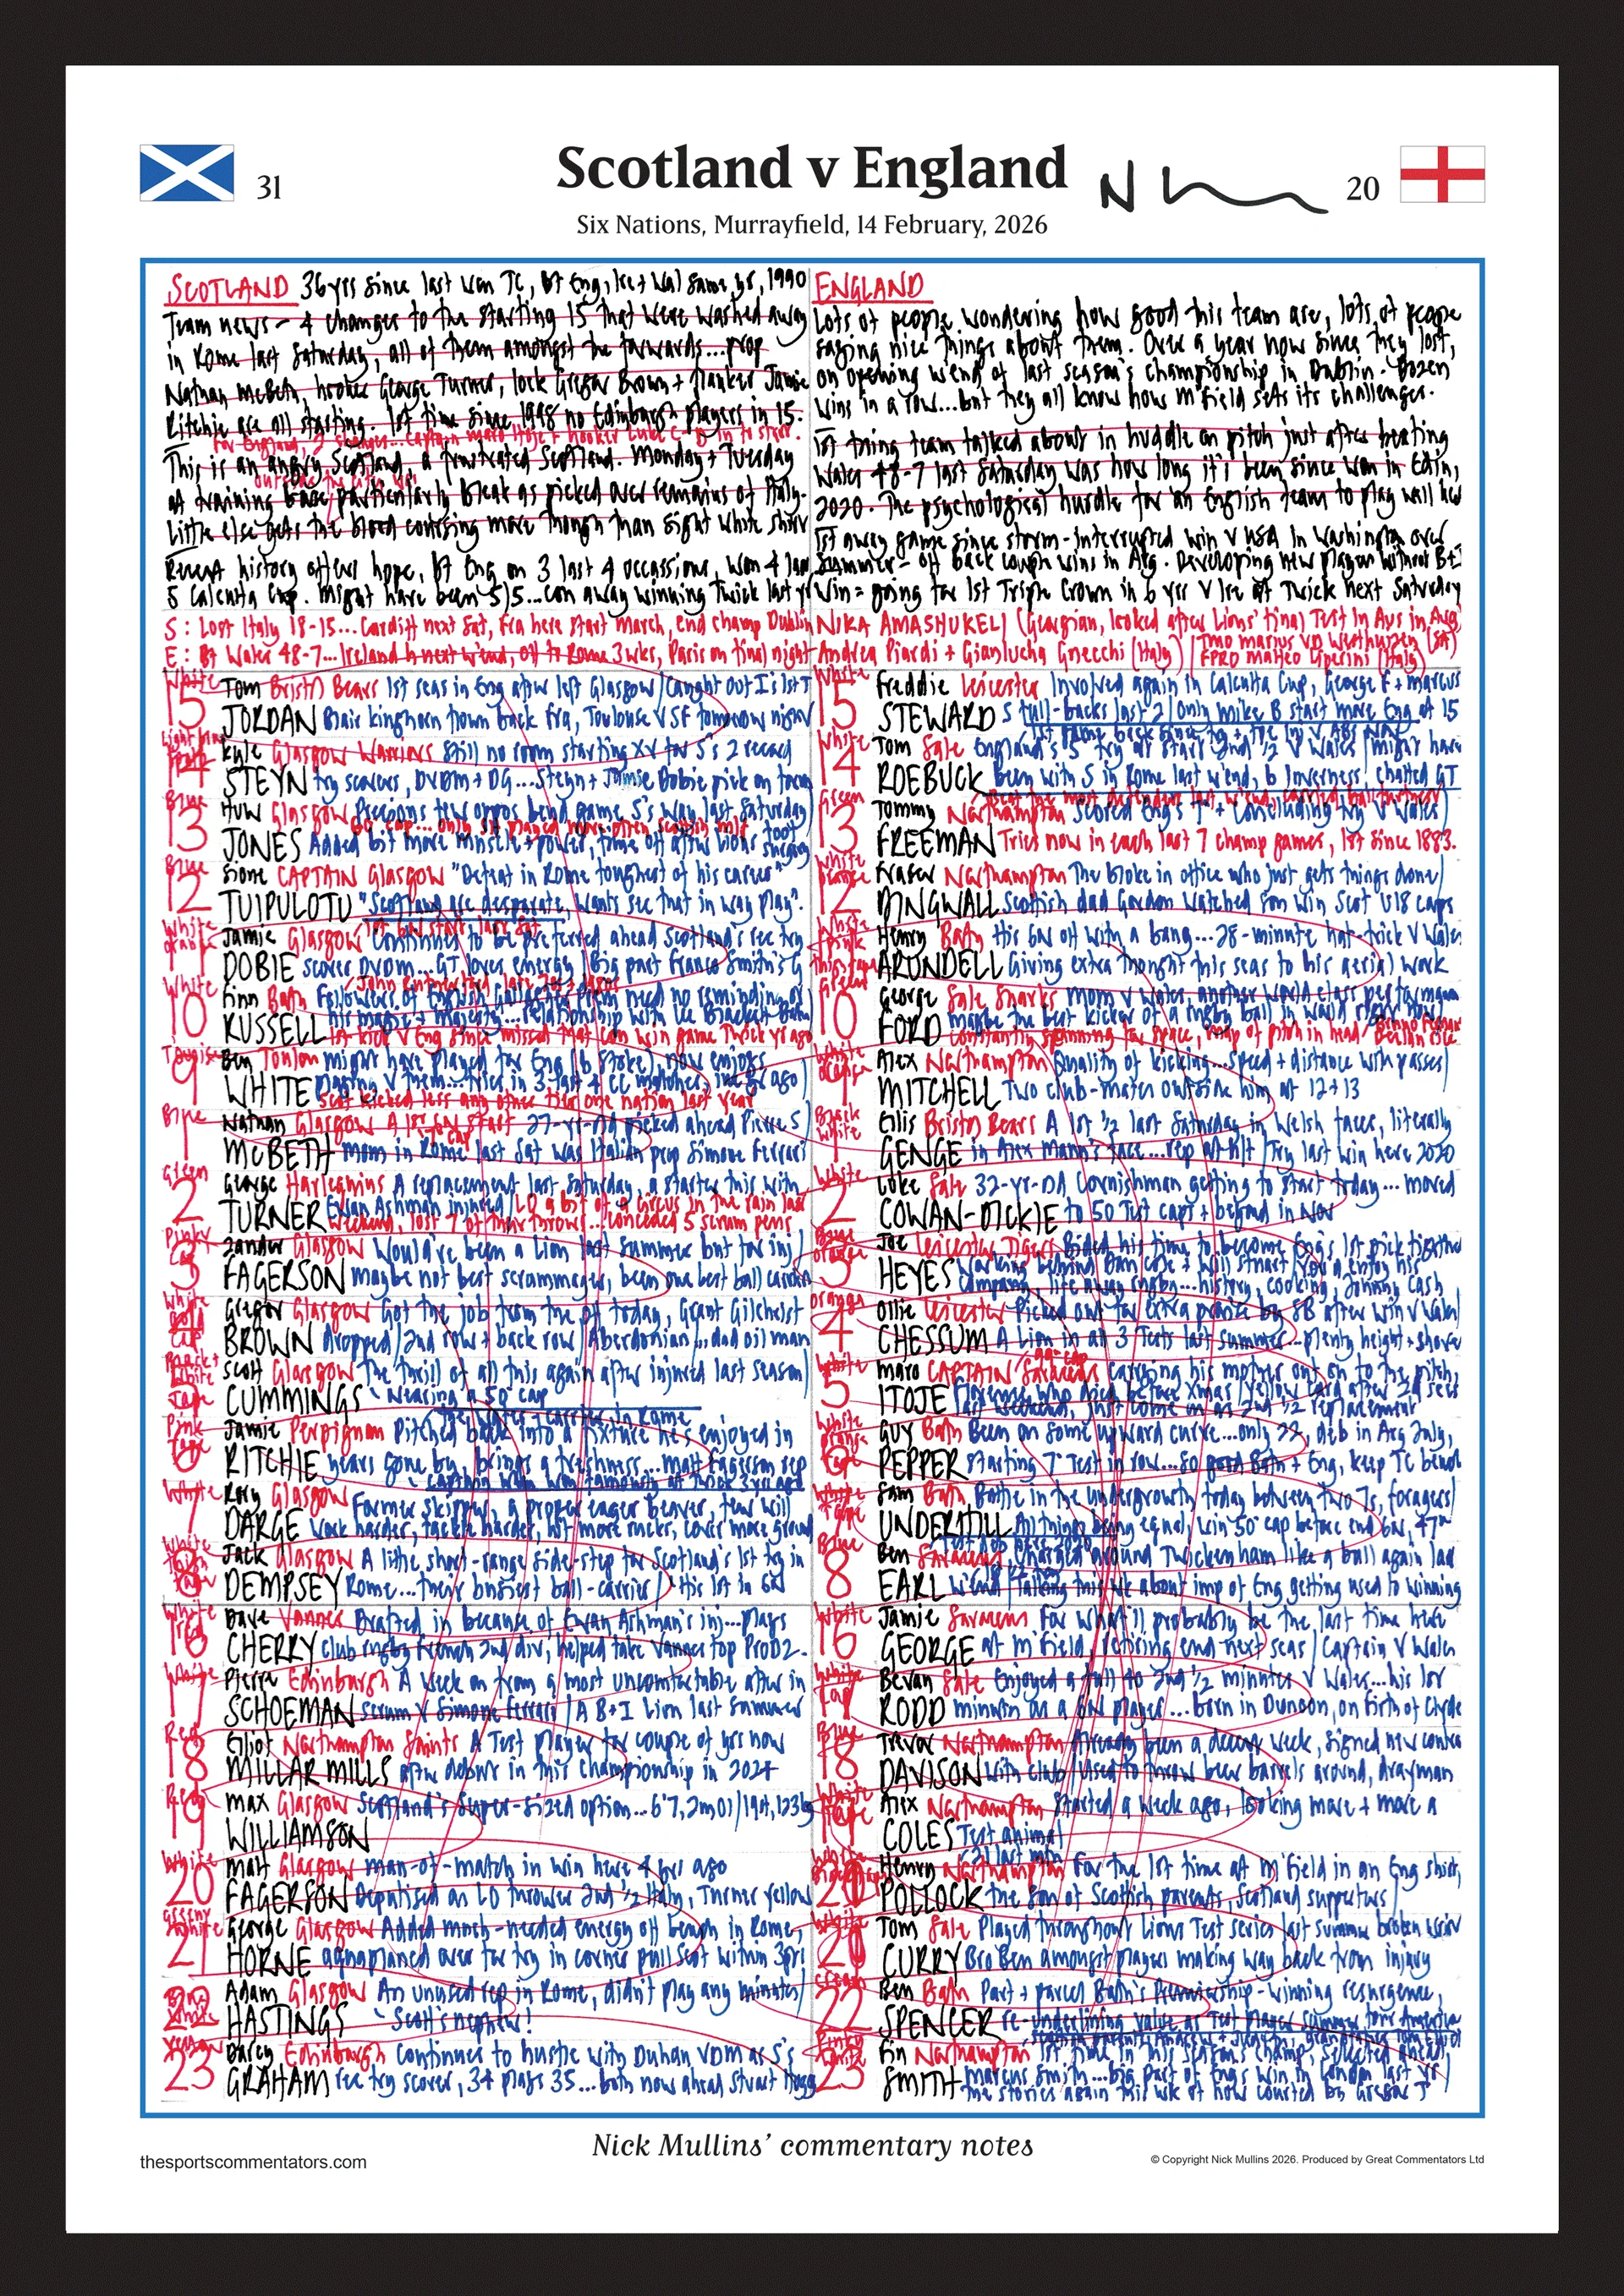 31
Scotland v England
20
Six Nations, Murrayfield, 14 February, 2026
SCOTLAND 36 yrs since last won TC, bt Eng, Ire + Wal same yr, 1990
Team news - 4 changes to the starting 15 that were washed away
in Rome last Saturday, all of them amongst the forwards...prop
Nathan McBeth, hooker George Turner, lock Gregor Brown + flanker Jamie
Ritchie are all starting. 1st time since 1998 no Edinburgh players in 15.
For England, 2 changes...captain Maro Itoje + hooker Luke C-D in to start.
This is an angry Scotland, a frustrated Scotland. Monday + Tuesday
outside the city
at training base particularly bleak as picked over remains of Italy.
Little else gets the blood coursing more though than sight white shirt
Recent history offers hope, bt Eng on 3 last 4 occassions, won 4 last
5 Calcutta Cup. Might have been 5/5...con away winning Twick last yr
S: Lost Italy 18-15...Cardiff next Sat, Fra here start March, end champ Dublin
E: Bt Wales 48-7...Ireland h next w'end, off to Rome 3wks, Paris on final night
ENGLAND
Lots of people wondering how good this team are, lots of people
saying nice things about them. Over a year now since they lost,
on opening w'end of last season's championship in Dublin. Dozen
wins in a row...but they all know how M'field sets its challenges.
1st thing team talked about in huddle on pitch just after beating
Wales 48-7 last Saturday was how long it's been since won in Edin,
2020. The psychological hurdle for an English team to play well here
1st away game since storm-interrupted win v USA in Washington over
summer - off back couple wins in Arg. Developing new player without B+I
Win = going for 1st Triple Crown in 6 yrs v Ire at Twick next Saturday
NIKA AMASHUKELI (Georgian, looked after Lions' final Test in Aus in Aug)
Andrea Piardi + Gianlucha Gnecchi (Italy) / TMO Marius vd Westhuizen (SA)
FPRO Matteo Liperini (Italy)
White
15 Tom Bristol Bears 1st seas in Eng after left Glasgow / caught out
JORDAN Blair Kinghorn flown back Fra, Toulouse v SF tomorrow night
14 Kyle Glasgow Warriors Still no room starting XV for S's 2 record
STEYN try scorers, DVDM + DG...Steyn + Jamie Dobie pick on form
Blue
13 Huw Glasgow Precious few oppos bend game S's way last Saturday
JONES Added bit more muscle + power, time off after Lions foot surgery
Blue
12 Sione CAPTAIN Glasgow "Defeat in Rome toughest of his career"
TUIPULOTU "Scotland are desperate, wants see that in way play".
White orange
11 Jamie Glasgow Continues to be preferred ahead Scotland's rec try
DOBIE scorer DVDM...GT loves energy / Big part Franco Smith's G
White
10 Finn Bath Followers of English club rugby need no reminding of
RUSSELL his magic + majesty...relationship with
1st kick v Eng since missed that con win game Twick yr ago
9 Ben Toulon Might have played for Eng (b Stoke), now enjoys
WHITE playing v them...tries in 3 last 4 CC matches, inc yr ago
Scot kicked less any other tier one nation last year
Blue
1 Nathan Glasgow A 1st 6N start 27-yr-old picked ahead Pierre S
McBETH Mom in Rome last Sat was Italian prop Simone Ferrari
Green
2 George Harlequins A replacement last Saturday, a starter this with
TURNER Ewan Ashman injured / LO a bit of a circus in the rain last
weekend, lost 7 of their throws...conceded 5 scrum pens
3 Zander Glasgow Would've been a Lion last summer but for inj
FAGERSON Maybe not best scrummager, been one best ball carriers
4 Gregor Glasgow Got the job from the off today, Grant Gilchrist
BROWN dropped / 2nd row + back row / Aberdonian...dad oil man
5 Scott Glasgow The thrill of all this again after injured last season
CUMMINGS Nearing a 50th cap
6 Jamie Perpignan Pitched back into a fixture he's enjoyed in
RITCHIE years gone by, brings a freshness...Matt Fagerson rep
Captain when won famously at Twick 3 yrs ago
White
7 Rory Glasgow Former skipper, a proper eager beaver, few will
DARGE work harder, tackle harder, hit more rucks, cover more ground
8 Jack Glasgow A lithe short-range side-step for Scotland's 1st try in
DEMPSEY Rome...their busiest ball-carrier / His 1st in 6N
White red
16 Dave Vannes Drafted in because of Ewan Ashman's inj...plays
CHERRY club rugby French 2nd div, helped take Vannes top ProD2.
White
17 Pierre Edinburgh A week on from a most uncomfortable after in
SCHOEMAN scrum v Simone Ferrari / A B+I Lion last summer
Red
18 Elliot Northampton Saints A Test player for couple of yrs now
MILLAR MILLS after debuts in this championship in 2024
Red
19 Max Glasgow Scotland's super-sized option...6'7, 2m01 / 19st, 123kg
WILLIAMSON
White
20 Matt Glasgow Man-of-match in win here 4 yrs ago
FAGERSON Deputised as LO thrower 2nd ½ Italy, Turner yellow
21 George Glasgow Added much-needed energy off bench in Rome,
HORNE aquaplaned over for try in corner pull Scot within 3pts
22 Adam Glasgow An unused rep in Rome, didn't play any minutes
HASTINGS Scott's nephew!
23 Darcy Edinburgh Continues to hustle with Duhan VDM as S's
GRAHAM rec try scorer, 34 plays 35...both now ahead Stuart Hogg
White
15 Freddie Leicester Involved again in Calcutta Cup, George F + Marcus
STEWARD S full-backs last 2 / only Mike B start more Eng at 15
White
14 Tom Sale England's 5th try at start 2nd ½ v Wales / might have
ROEBUCK been with S in Rome last w'end, b Inverness, chatted GT
Green
13 Tommy Northampton Scored Eng's 7th + concluding try v Wales
FREEMAN Tries now in each last 7 champ games, 1st since 1883.
12 Fraser Northampton The bloke in office who just gets things done
DINGWALL Scottish dad Gordon watched son win Scot U18 caps
11 Henry Bath His 6N off with a bang...28-minute hat-trick v Wales
ARUNDELL Giving extra thought this seas to his aerial work
10 George Sale Sharks Mom v Wales, another world class performance
FORD maybe the best kicker of a rugby ball in world right now
Constantly scanning for space, map of pitch in head
9 Alex Northampton Quality of kicking...speed + distance with passes
MITCHELL Two club-mates outside him at 12+13
Black white
1 Ellis Bristol Bears A 1st ½ last Saturday in Welsh faces, literally
GENGE in Alex Mann's face...rep at h/t / Try last win here 2020
White
2 Luke Sale 32-yr-old Cornishman getting to start today...moved
COWAN-DICKIE to 50 Test caps + beyond in Nov
3 Joe Leicester Tigers Bided his time to become Eng's 1st pick tighthead
HEYES Working behind Dan Cole + Will Stuart / You'd enjoy his
company, life away rugby...history, cooking, Johnny Cash
Orange
4 Ollie Leicester Picked out for extra praise by SB after win v Wales
CHESSUM A Lion in all 3 Tests last summer...plenty height + shove
White
5 Maro CAPTAIN Saracens Carrying his mother out on to the pitch,
ITOJE Florence who died before Xmas / Yellow card after 24 secs
last weekend, just come on as 2nd ½ replacement
6 Guy Bath Been on some upward curve...only 22, deb in Arg July,
PEPPER starting 7th Test in row...so good Bath + Eng, keep TC bench
7 Sam Bath Battle in the undergrowth today between two 7s, foragers
UNDERHILL All things being equal, win 50th cap before end 6N, 47th
Blue
8 Ben Saracens Charged around Twickenham like a ball again last
EARL w'end Talking this wk about imp of Eng getting used to winning
White
16 Jamie Saracens For what'll probably be the last time here
GEORGE at M'field, retiring end next seas / Captain v Wales
White Tape
17 Bevan Sale Enjoyed a full 40 2nd ½ minutes v Wales...his 1st
RODD minutes as a 6N player...born in Dunoon, on Firth of Clyde
Blue
18 Trevor Northampton Already been a decent week, signed new contract
DAVISON with club / Used to throw beer barrels around, drayman
White Tape
19 Alex Northampton Started a week ago, looking more + more a
COLES Test animal
21 last mth
20 Henry Northampton For the 1st time at M'field in an Eng shirt,
POLLOCK the son of Scottish parents, Scotland supporters
White
Tom Sale Played throughout Lions Test series last summer broken wrist
CURRY Bro Ben amongst players making way back from injury
Cream
22 Ben Bath Part + parcel Bath's Premiership-winning resurgence,
SPENCER re-underlining value as Test player summer tour Americas
23 Fin Northampton 1st time in this season's champ, selected ahead
SMITH Marcus Smith...big part of Eng's win in London last yr
The stories again this wk of how courted by Gregor T
Nick Mullins' commentary notes
thesportscommentators.com
© Copyright Nick Mullins 2026. Produced by Great Commentators Ltd